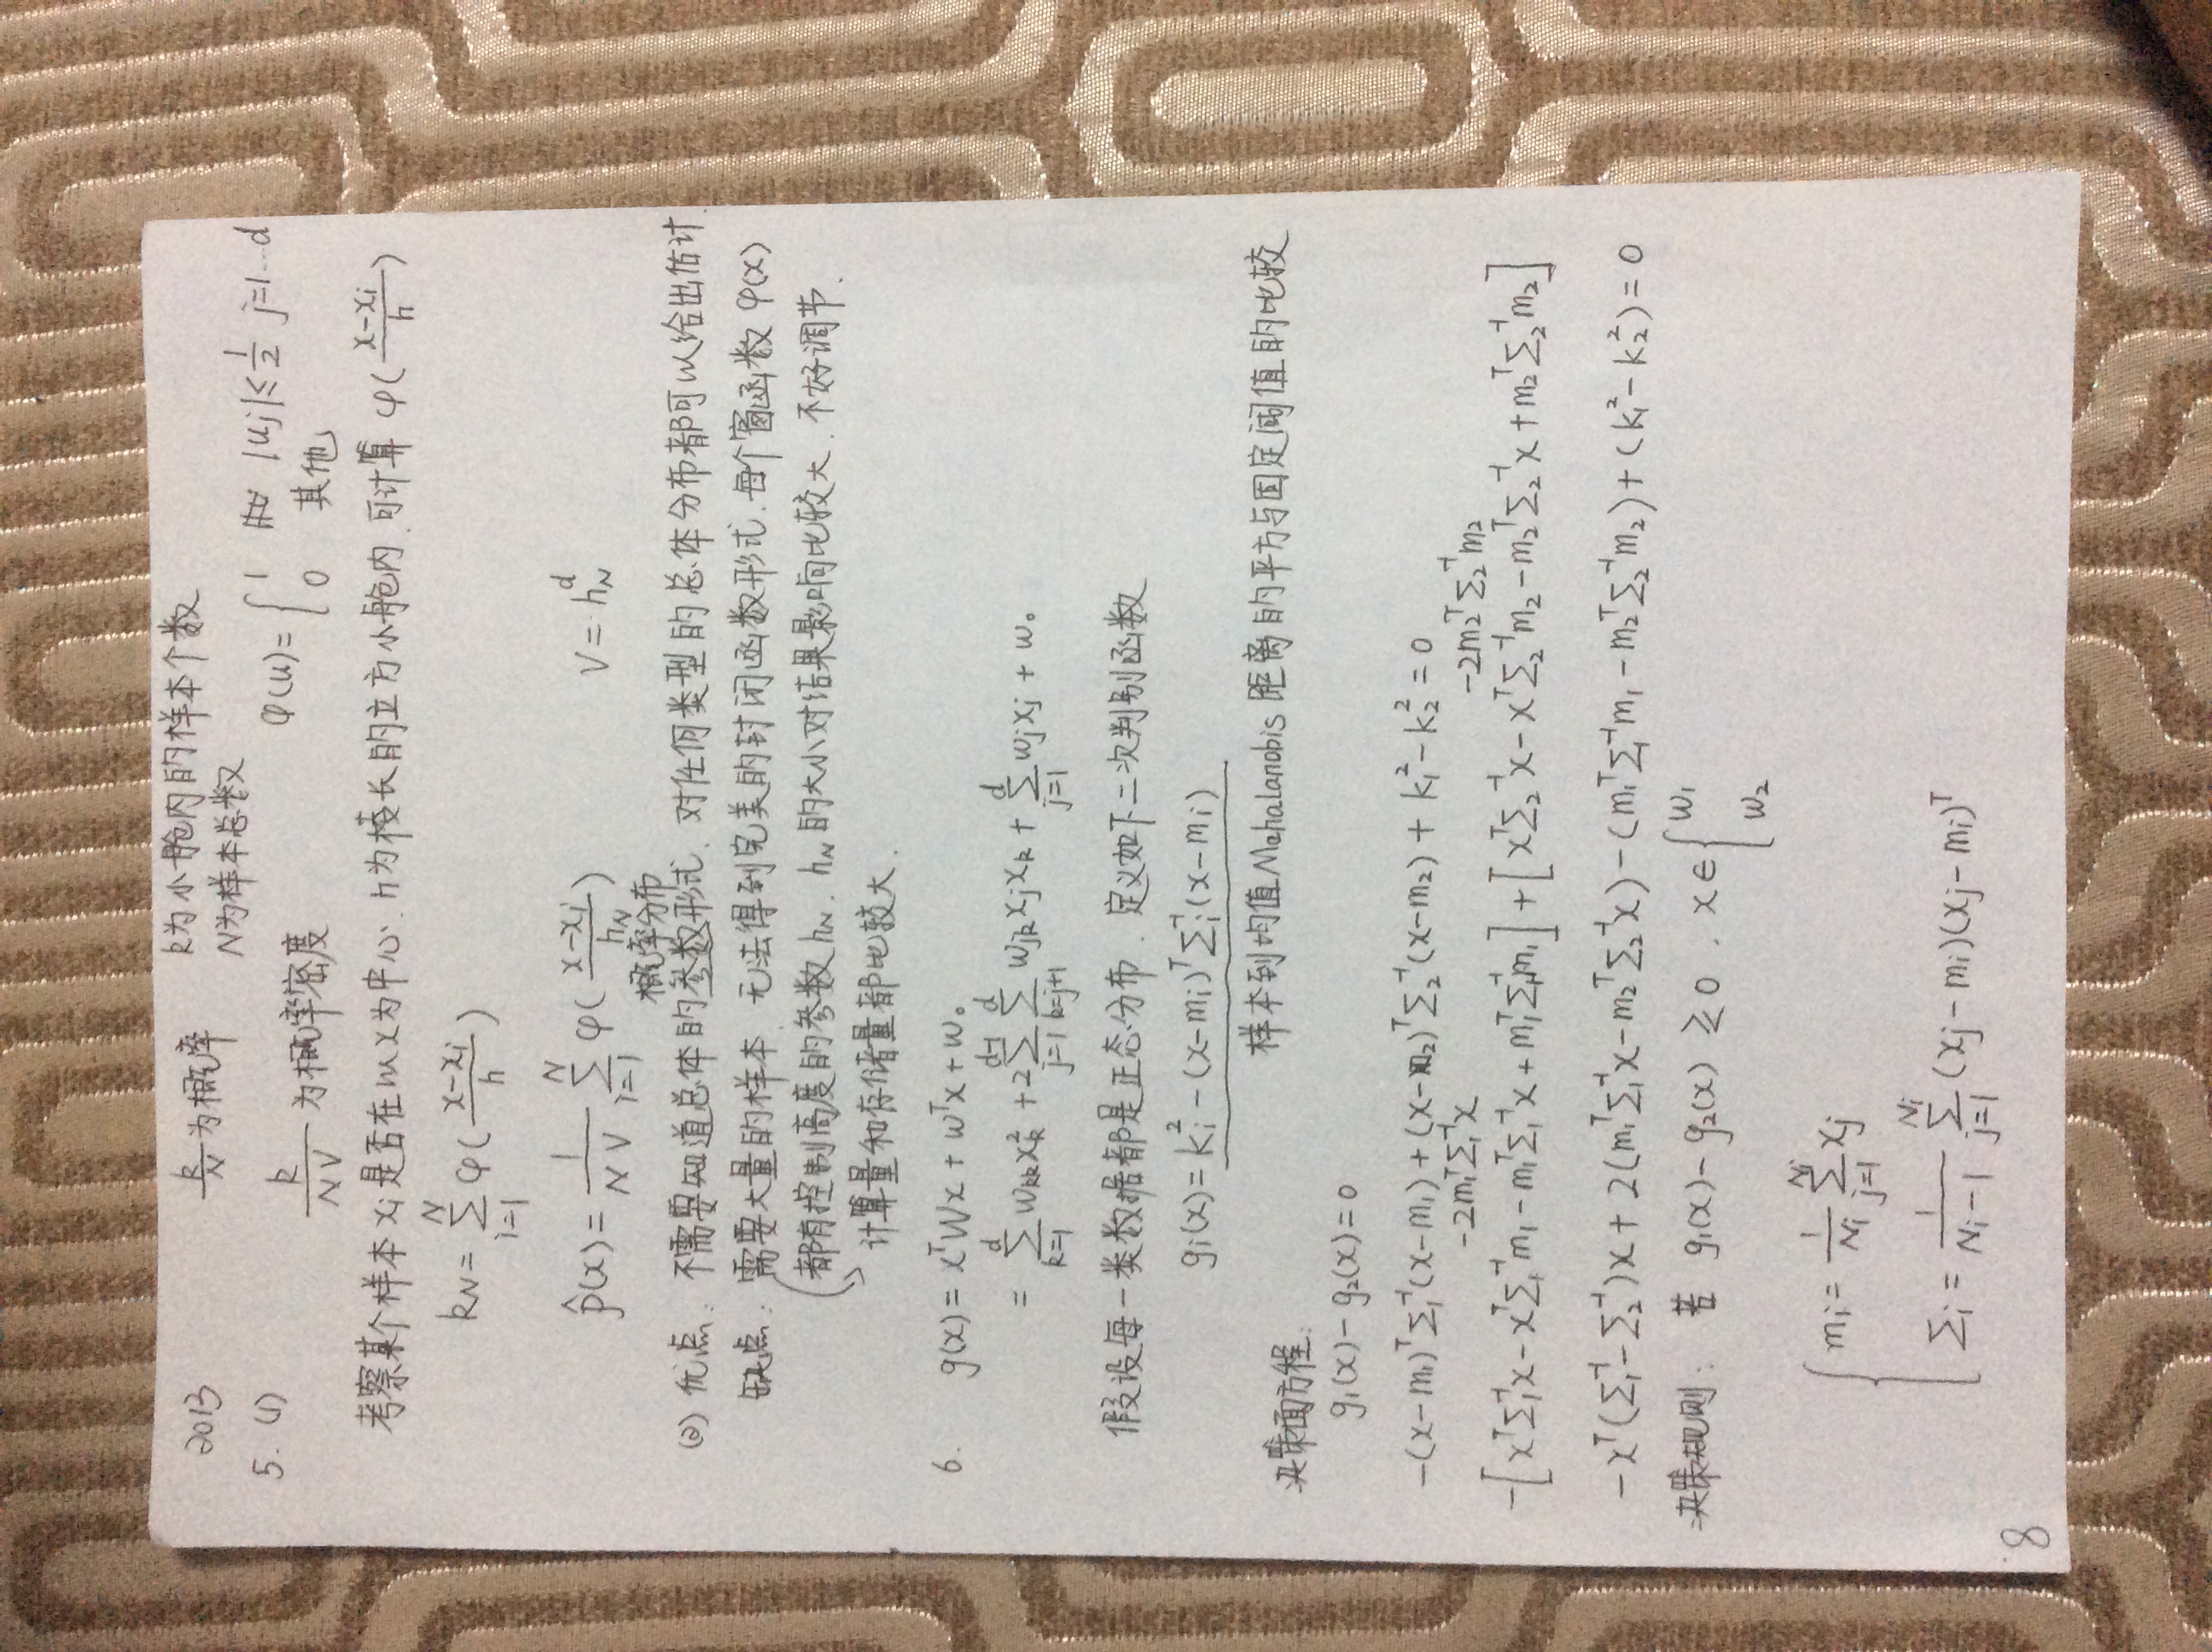 2013 k/N 为概率 k为小舱内的样本个数
N为样本总数
5. (1) k/(NV) 为概率密度 φ(u) = { 1 |uj| ≤ 1/2 j=1…d
0 其他
考察某个样本xi是否在以x为中心, h为棱长的立方小舱内, 可计算 φ((x-xi)/h)
kN = Σ(i=1→N) φ((x-xi)/h)
p̂(x) = 1/(NV) Σ(i=1→N) φ((x-xi)/hN) V = hN^d
概率分布
(2) 优点: 不需要知道总体的参数形式, 对任何类型的总体分布都可以给出估计.
缺点: 需要大量的样本, 无法得到完美的封闭函数形式, 每个窗函数 φ(x)
都有控制高度的参数 hN, hN 的大小对结果影响比较大, 不好调节.
计算量和存储量都比较大.
6. g(x) = xᵀWx + wᵀx + w₀
= Σ(k=1→d) wkk xk² + 2 Σ(j=1→d-1) Σ(k=j+1→d) wjk xj xk + Σ(j=1→d) wj xj + w₀
假设每一类数据都是正态分布, 定义如下二次判别函数
gi(x) = ki² - (x-mi)ᵀ Σi⁻¹ (x-mi)
样本到均值 Mahalanobis 距离的平方与固定阈值的比较
决策面方程:
g₁(x) - g₂(x) = 0
-(x-m₁)ᵀ Σ₁⁻¹ (x-m₁) + (x-m₂)ᵀ Σ₂⁻¹ (x-m₂) + k₁² - k₂² = 0
-2m₁ᵀΣ₁⁻¹x -2m₂ᵀΣ₂⁻¹m₂
-[xᵀΣ₁⁻¹x - xᵀΣ₁⁻¹m₁ - m₁ᵀΣ₁⁻¹x + m₁ᵀΣ₁m₁] + [xᵀΣ₂⁻¹x - xᵀΣ₂⁻¹m₂ - m₂ᵀΣ₂⁻¹x + m₂ᵀΣ₂⁻¹m₂]
-xᵀ(Σ₁⁻¹ - Σ₂⁻¹)x + 2(m₁ᵀΣ₁⁻¹x - m₂ᵀΣ₂⁻¹x) - (m₁ᵀΣ₁⁻¹m₁ - m₂ᵀΣ₂⁻¹m₂) + (k₁² - k₂²) = 0
决策规则: 若 g₁(x) - g₂(x) ≷ 0, x ∈ { w₁
w₂
{ mi = 1/Ni Σ(j=1→Ni) xj
Σi = 1/(Ni-1) Σ(j=1→Ni) (xj-mi)(xj-mi)ᵀ
8